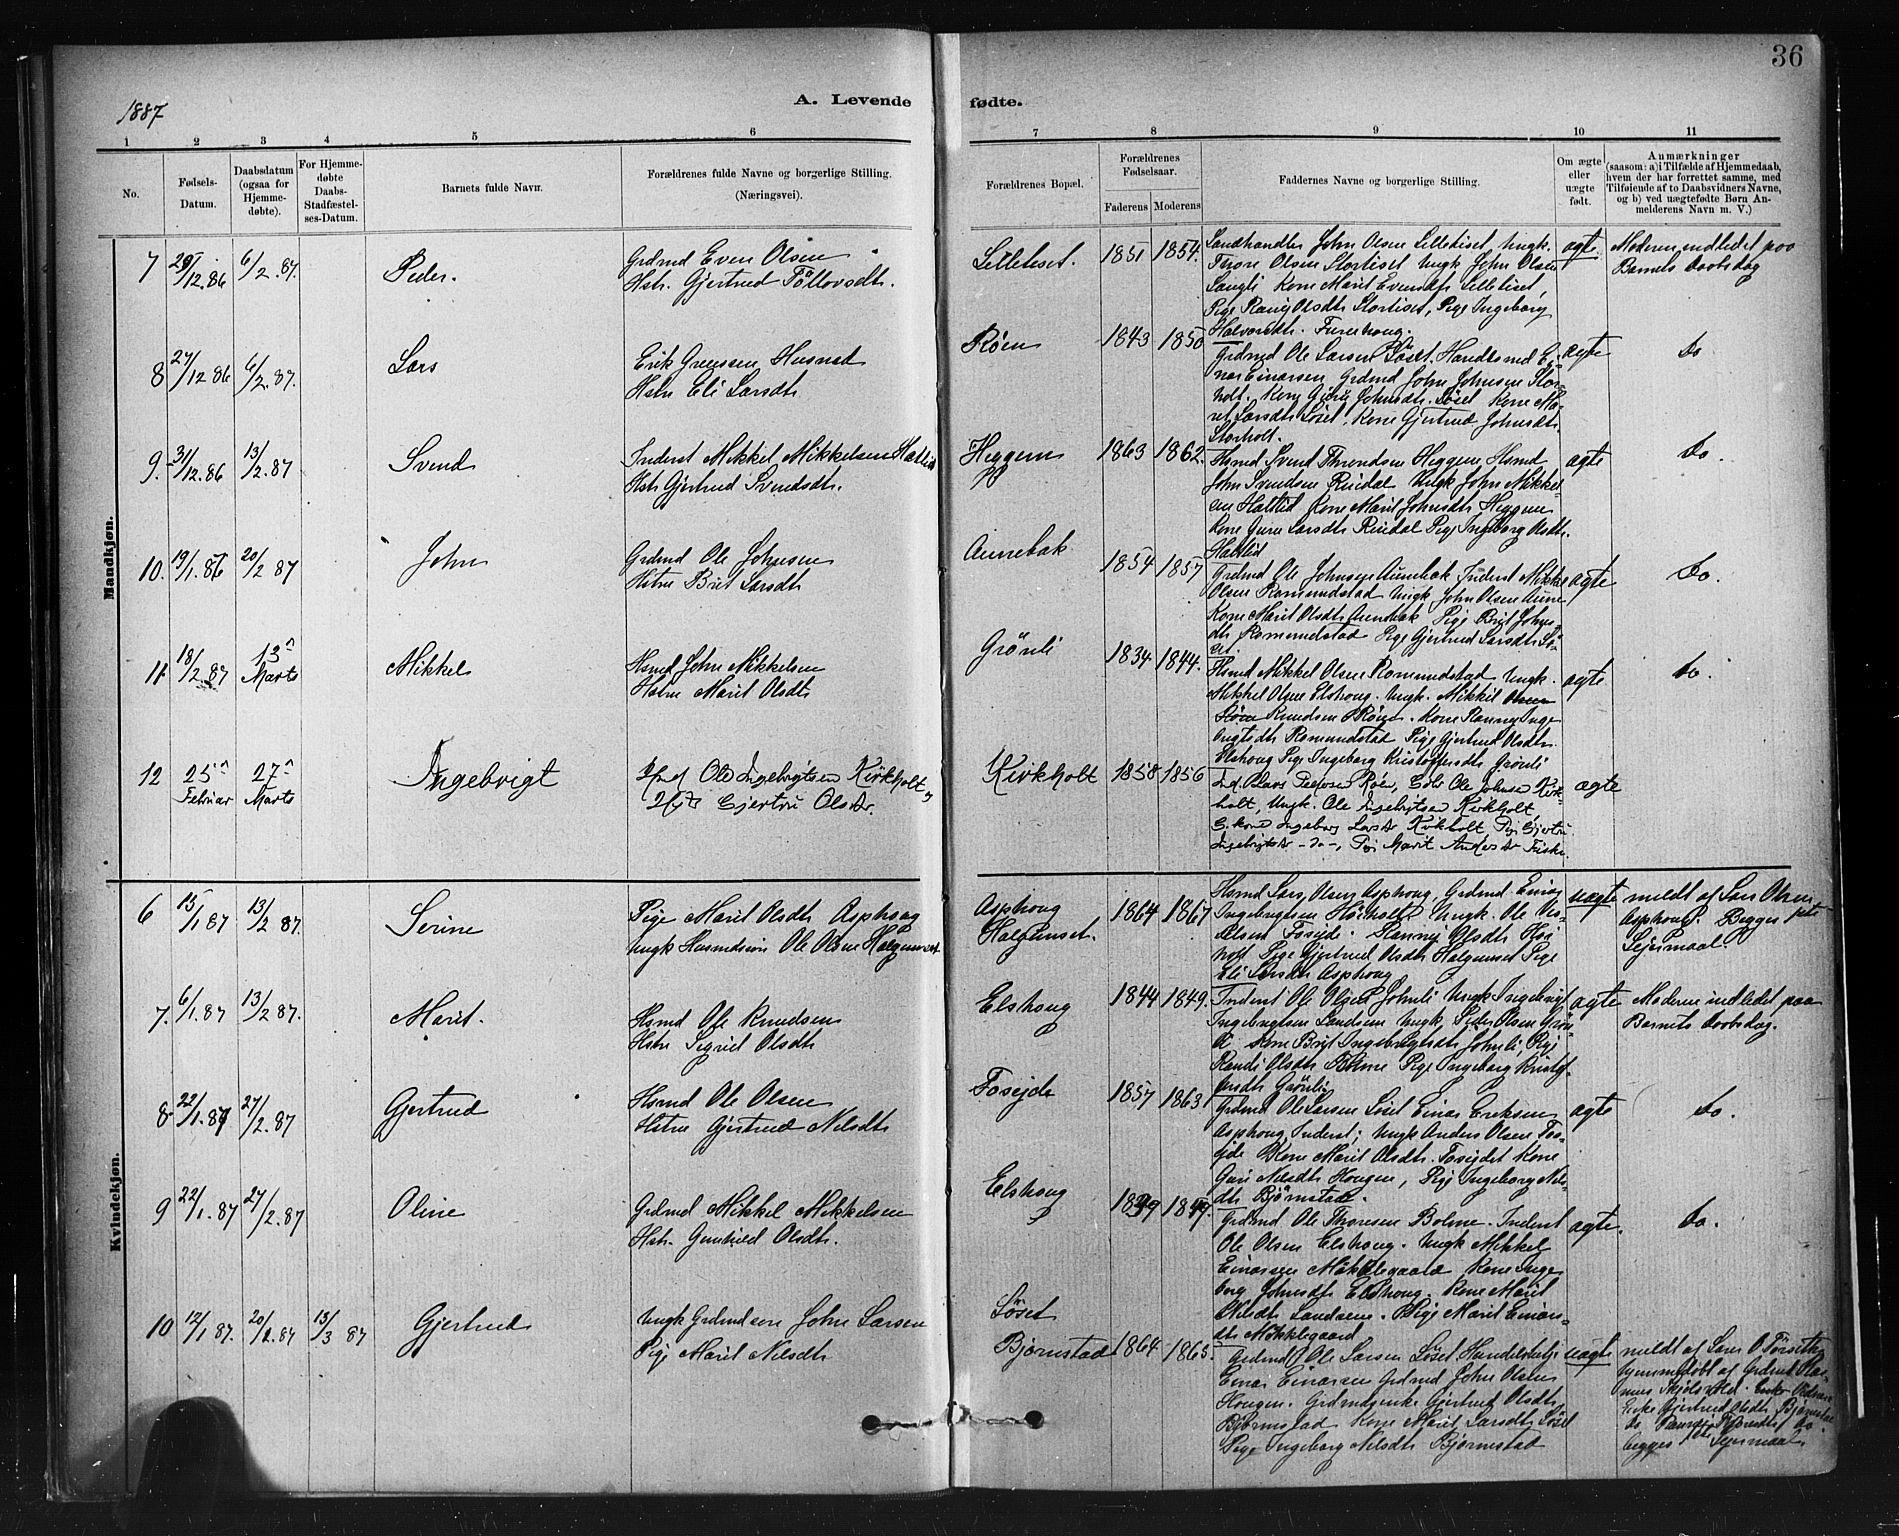 36
1887
A. Levende fødte.
1 2 3 4 5 6 7 8 9 10 11
No.
Fødsels-
Datum.
Daabsdatum
(ogsaa for
Hjemme-
døbte).
For Hjemme-
døbte
Daabs-
Stadfæstel-
ses-Datum.
Barnets fulde Navn.
Forældrenes fulde Navne og borgerlige Stilling.
(Næringsvei).
Forældrenes Bopæl.
Forældrenes
Fødselsaar.
Faderens Moderens
Faddernes Navne og borgerlige Stilling.
Om ægte
eller
uægte
født.
Anmærkninger
(saasom: a) i Tilfælde af Hjemmedaab,
hvem der har forrettet samme, med
Tilføiende af to Daabsvidners Navne,
og b) ved uægtefødte Børn An-
melderens Navn m. V.)
Mandkjøn.
7 29/12.86 6/2.87. Peder.
Grdmd Even Olsen
Hstr. Gjertrud Töllovsdtr.
Lilletiset. 1851 1854.
Landhandler John Olsen Lilletiset, Ungk.
Thore Olsen Stortiset Ungk John Olsen
Langli Kone Marit Evensdtr Lilletiset,
Pige Olsdtr Stortiset, Pige Ingeborg
Halvorsdtr.
ægte
Moderen indledet paa
Barnets Daabsdag
8 27/12 86 6/2.87. Lars
Erik Husmd
Hstru Eli Larsdtr
Røen 1843 1850
Grdmd Ole Larsen Løset. Handelsmd Ei-
nar Einarsen Grdmd John Johnsen Stor-
holt. Kone Guru Johnsdtr. Löset Kone Ma-
rit Larsdtr Löset, Kone Gjertrud Johnsdtr.
Storholt.
ægte
do
9. 31/12.86 13/2.87 Svend
Inderst Mikkel Mikkelsen
Hstr Gjertrud Svendsdtr.
Heggem 1863 1862.
Hsmd Svend Throndsen Heggem Hsmd
John Svendsen Rindal Ungk John Mikkel-
sen Kone Marit Johnsdtr Heggem
Kone Guru Larsdtr Rindal Pige Ingeborg Olsdtr.
ægte
do.
10. 19/1.86 20/2 87 John
Grdmd Ole Johnsen
Hstru Brit Larsdtr
Aunebak 1854 1857
Grdmd Ole Johnsen Aunebak Inderst Mikkel
Olsen Romundstad Ungk John Olsen Aune
Kone Marit Olsdtr Aunebak Pige Brit Johns-
dtr Romundstad Pige Gjertrud Larsdtr Lö-
set.
ægte
do.
11. 18/2.87 13de Marts Mikkel
Hsmd John Mikkelsen
Hstru Marit Olsdtr
Grönli 1834 1844.
Hsmd Mikkel Olsen Romundstad Ungk.
Mikkel Olsen Elshoug. Ungk. Mikkel
Knudsen Røen. Kone Inge-
brigtsdtr Romundstad Pige Gjertrud Olsdtr.
Elshoug Pige Ingeborg Kristoffersdtr Grönli
ægte
do.
12 25de Februar 27de Marts Ingebrigt
Ole Ingebrigtsen Kirkholt
Gjertru Olsdtr
Kirkholt 1858 1856
Lars Røen, Ole Johnsen Kirk-
holt, Ungk. Ole Ingebrigtsen Kirkholt,
G. kone Ingeborg Larsdtr Kirkholt Pige Gjertru
Ingebrigtsdtr -do-, Pige Marit Andersdtr
ægte
Kvindekjøn.
6 15/1 87 13/2 87. Serine
Pige Marit Olsdtr Asphoug
Ungk Husmdssøn Ole Olsen Halgunset
Asphoug
Halgunset. 1864 1867
Hsmd Lars Olsen Asphoug, Grdmd Einar
Ingebrigtsen Ungk. Ole
Olsen Fosejde.
Pige Gjertrud Olsdtr Halgunset Pige
Eli Larsdtr Asphoug
uægte
meldt af Lars Olsen
Asphoug. Begges 1ste
Lejermaal.
7. 6/1.87 13/2 87. Marit.
Hsmd Ole Knudsen
Hstru Sigrid Olsdtr
Elshoug 1844 1849.
Inderst Ole Olsen Johnli Ungk Ingebrigt
Ingebrigtsen Ungk, Peder Olsen Grön-
li Kone Brit Ingebrigtsdtr Johnli, Pige
Randi Olsdtr Bolme Pige Ingeborg Kristof-
fersdtr Grönli
ægte
Moderen indledet paa
Barnets Daabsdag.
8. 22/1.87 27/2.87 Gjertrud
Hsmd Ole Olsen
Hstru Gjertrud Nilsdtr
Fosejde 1857 1863
Grdmd Ole Larsen Löset Einar Eriksen
Asphoug Inderst; Ungk Anders Olsen Fos-
ejde Kone Marit Olsdtr. Fosejdet Kone
Guri Nilsdtr Hougen, Pige Ingeborg Nils-
dtr Björnstad.
ægte
do.
9 22/1.87 27/2.87 Oline
Grdmd Mikkel Mikkelsen
Hstr. Gunhild Olsdtr.
Elshoug
Grdmd Ole Thoresen Bolme. Inderst
Ole Olsen Elshoug. Ungk Mikkel
Einarsen Mikkelgaard Kone Inge-
borg Johnsdtr Elshoug. Kone Marit
Pige Marit Einars-
dtr Mikkelgaard
ægte.
do.
10 12/1 87. 20/2.87 13/3 87 Gjertrud
Ungk Grdmdssøn John Larsen
Pige Marit Nilsdtr
Löset
Bjørnstad 1864 1865.
Grdmd Ole Larsen Löset Handelsbetj
Einar Einarsen Grdmd John Olsen
Hougen. Grdmdsenke Gjertrud Olsdtr
Bjørnstad Kone Marit Larsdtr Löset
Pige Ingeborg Nilsdtr Bjørnstad
uægte
meldt af Lars O
hjemmedöbt af Grdmd
Enke Gjertrud Olsdtr Bjørnstad
begges 1ste Lejermaal.